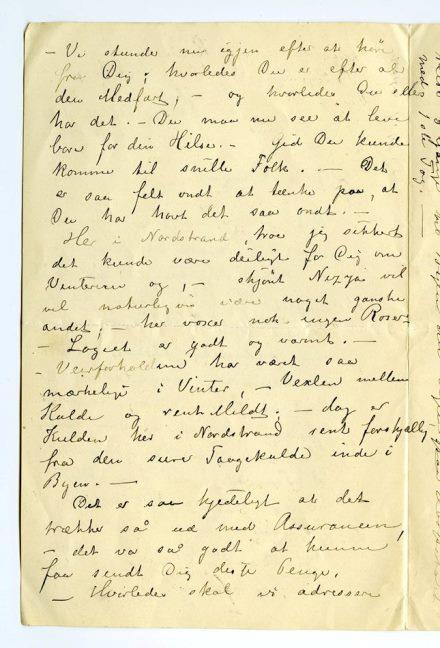 – Vi stunde nu igjen efter at høre
fra Dig, hvorledes Du er efter al
den Medfart, – og hvorledes Du ellers
har det. – Du maa nu see at leve
bare for din Hilse. – Gid Du kunde
komme til snille Folk. – Det
er saa felt ondt at tænke paa, at
Du har havt det saa ondt. –
Her i Nordstrand, troe jeg sikkert
det kunde være deiligt for Dig om
Vinteren og, – skjönt Nizza vil
vil naturligvis være noget ganske
andet, – her voxer nok ingen Roser
– Logiet er godt og varmt. –
– Veirforholdene har været saa
mærkelige i Vinter, – Vexlen mellem
Kulde og rent Mildt; – dog er
Kulden her i Nordstrand rent forskjellig
fra den sure Taagekulde inde i
Byen. –
Det er saa kjedeligt at det
trækker så ud med Assurancen,
– det va så godt at kunne
faa sendt Dig deste Penge.
– Hvorledes skal vi adressere